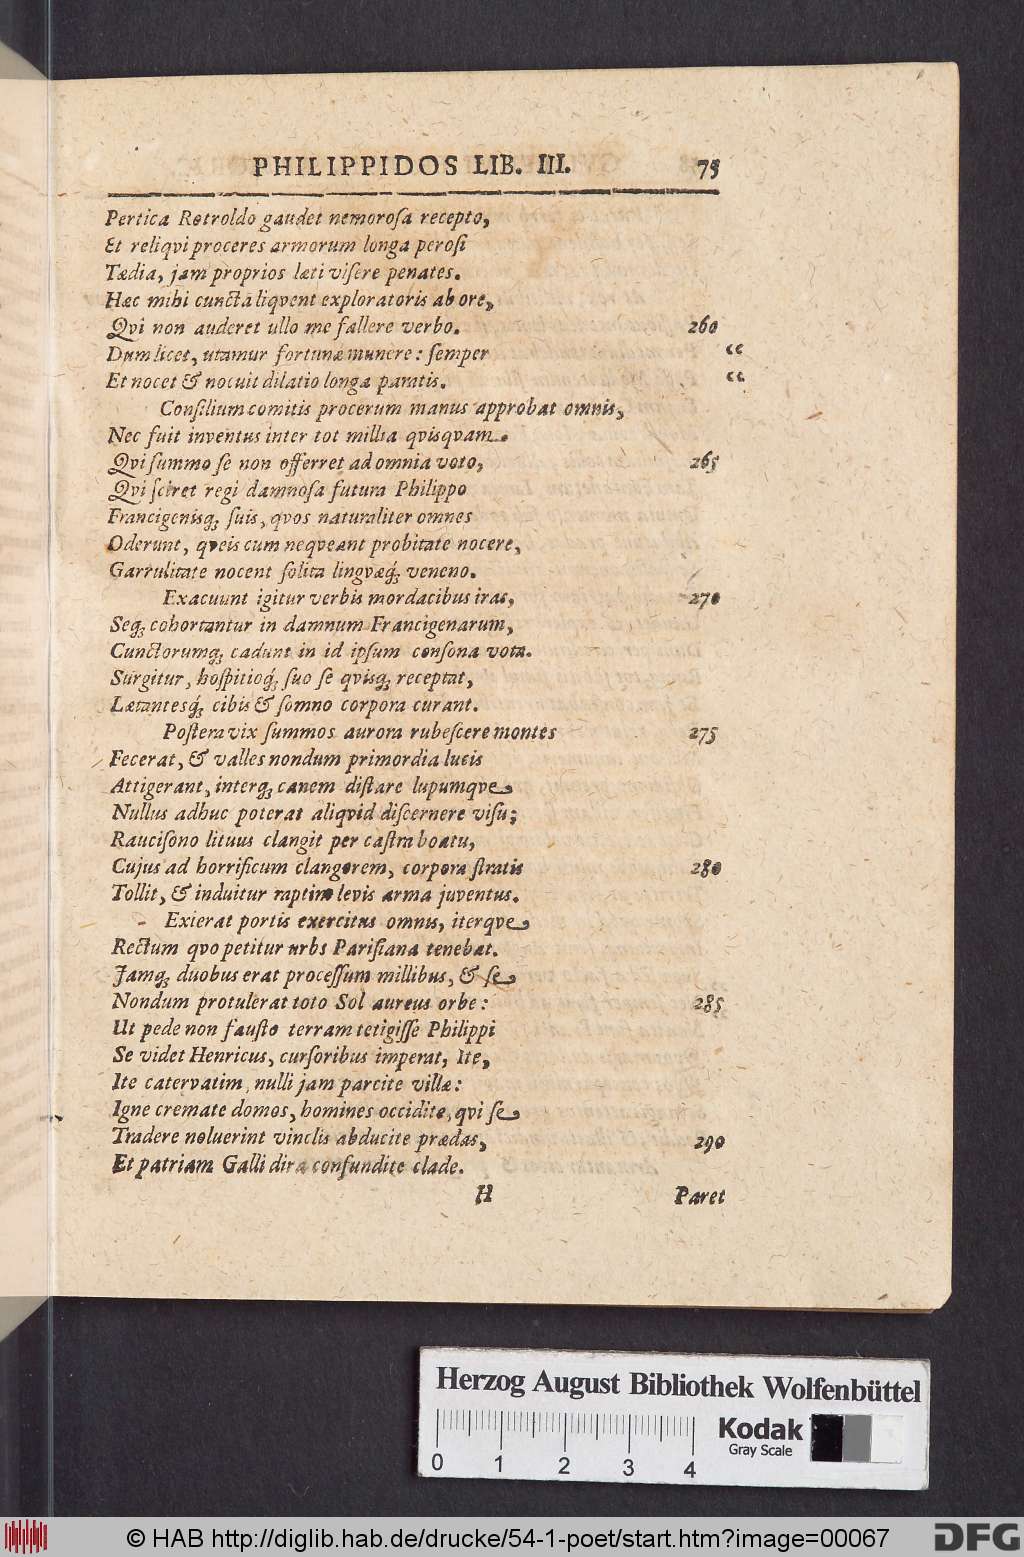 PHILIPPIDOS LIB. III. 75
Pertica Rotroldo gaudet nemorosa recepto,
Et reliqvi proceres armorum longa perosi
Tædia, jam proprios læti visere penates.
Hæc mihi cuncta liqvent exploratoris ab ore,
Qvi non auderet ullo me fallere verbo. 260
Dum licet, utamur fortunæ munere: semper “
Et nocet & nocuit dilatio longa paratis. “
Consilium comitis procerum manus approbat omnis,
Nec fuit inventus inter tot millia qvisqvam.
Qvi summo se non offerret ad omnia voto, 265
Qvi sciret regi damnosa futura Philippo
Francigenisq; suis, qvos naturaliter omnes
Oderunt, qveis cum neqveant probitate nocere,
Garrulitate nocent solita lingvæq́; veneno.
Exacuunt igitur verbis mordacibus iras, 270
Seq; cohortantur in damnum Francigenarum,
Cunctorumq; cadunt in id ipsum consona vota.
Surgitur, hospitioq́; suo se qvisq; receptat,
Lætantesq́; cibis & somno corpora curant.
Postera vix summos aurora rubescere montes 275
Fecerat, & valles nondum primordia lucis
Attigerant, interq; canem distare lupumqve
Nullus adhuc poterat aliqvid discernere visu;
Raucisono lituus clangit per castra boatu,
Cujus ad horrificum clangorem, corpora stratis 280
Tollit, & induitur raptim levis arma juventus.
Exierat portis exercitus omnis, iterqve
Rectum qvo petitur urbs Parisiana tenebat.
Jamq; duobus erat processum millibus, & se
Nondum protulerat toto Sol aureus orbe: 285
Ut pede non fausto terram tetigisse Philippi
Se videt Henricus, cursoribus imperat, Ite,
Ite catervatim, nulli jam parcite villæ:
Igne cremate domos, homines occidite, qvi se
Tradere noluerint vinclis abducite prædas, 290
Et patriam Galli dira confundite clade.
H Paret
Herzog August Bibliothek Wolfenbüttel
Kodak
Gray Scale
0 1 2 3 4
© HAB http://diglib.hab.de/drucke/54-1-poet/start.htm?image=00067
DFG